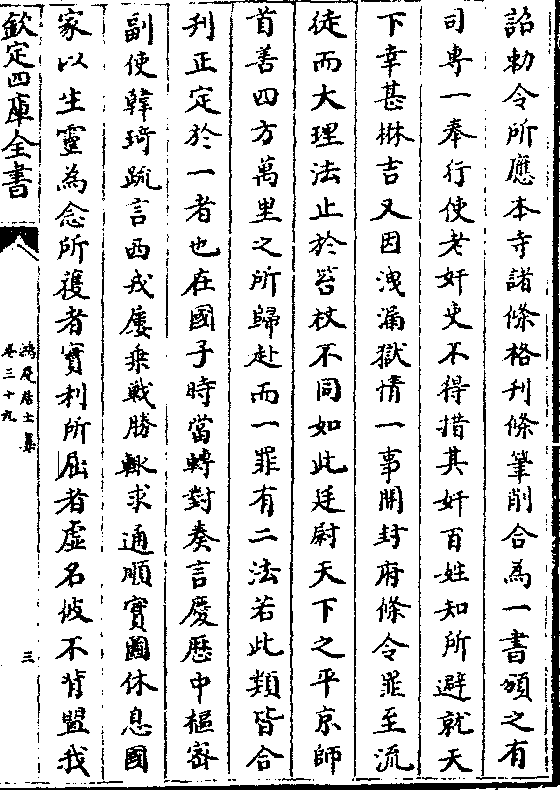 詔勅令所應本寺諸條格刋條筆削合為一書頒之有
司専一奉行使老奸吏不得措其奸百姓知所避就天
下幸甚楙吉又因洩漏獄情一事開封府條令罪至流
徒而大理法止於笞杖不同如此廷尉天下之平京師
首善四方萬里之所歸赴而一罪有二法若此類皆合
刋正定於一者也在國子時當轉對奏言慶厯中樞宻
副使韓琦䟽言西戎屢乗戰勝輙求通順實圖休息國
家以生靈為念所獲者實利所屈者虚名彼不背盟我
欽定四庫全書
鴻慶居士集
卷三十九
三